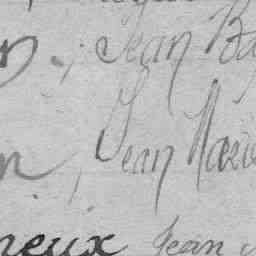 n, Jean Ba
n, Jean Marie
neux Jean